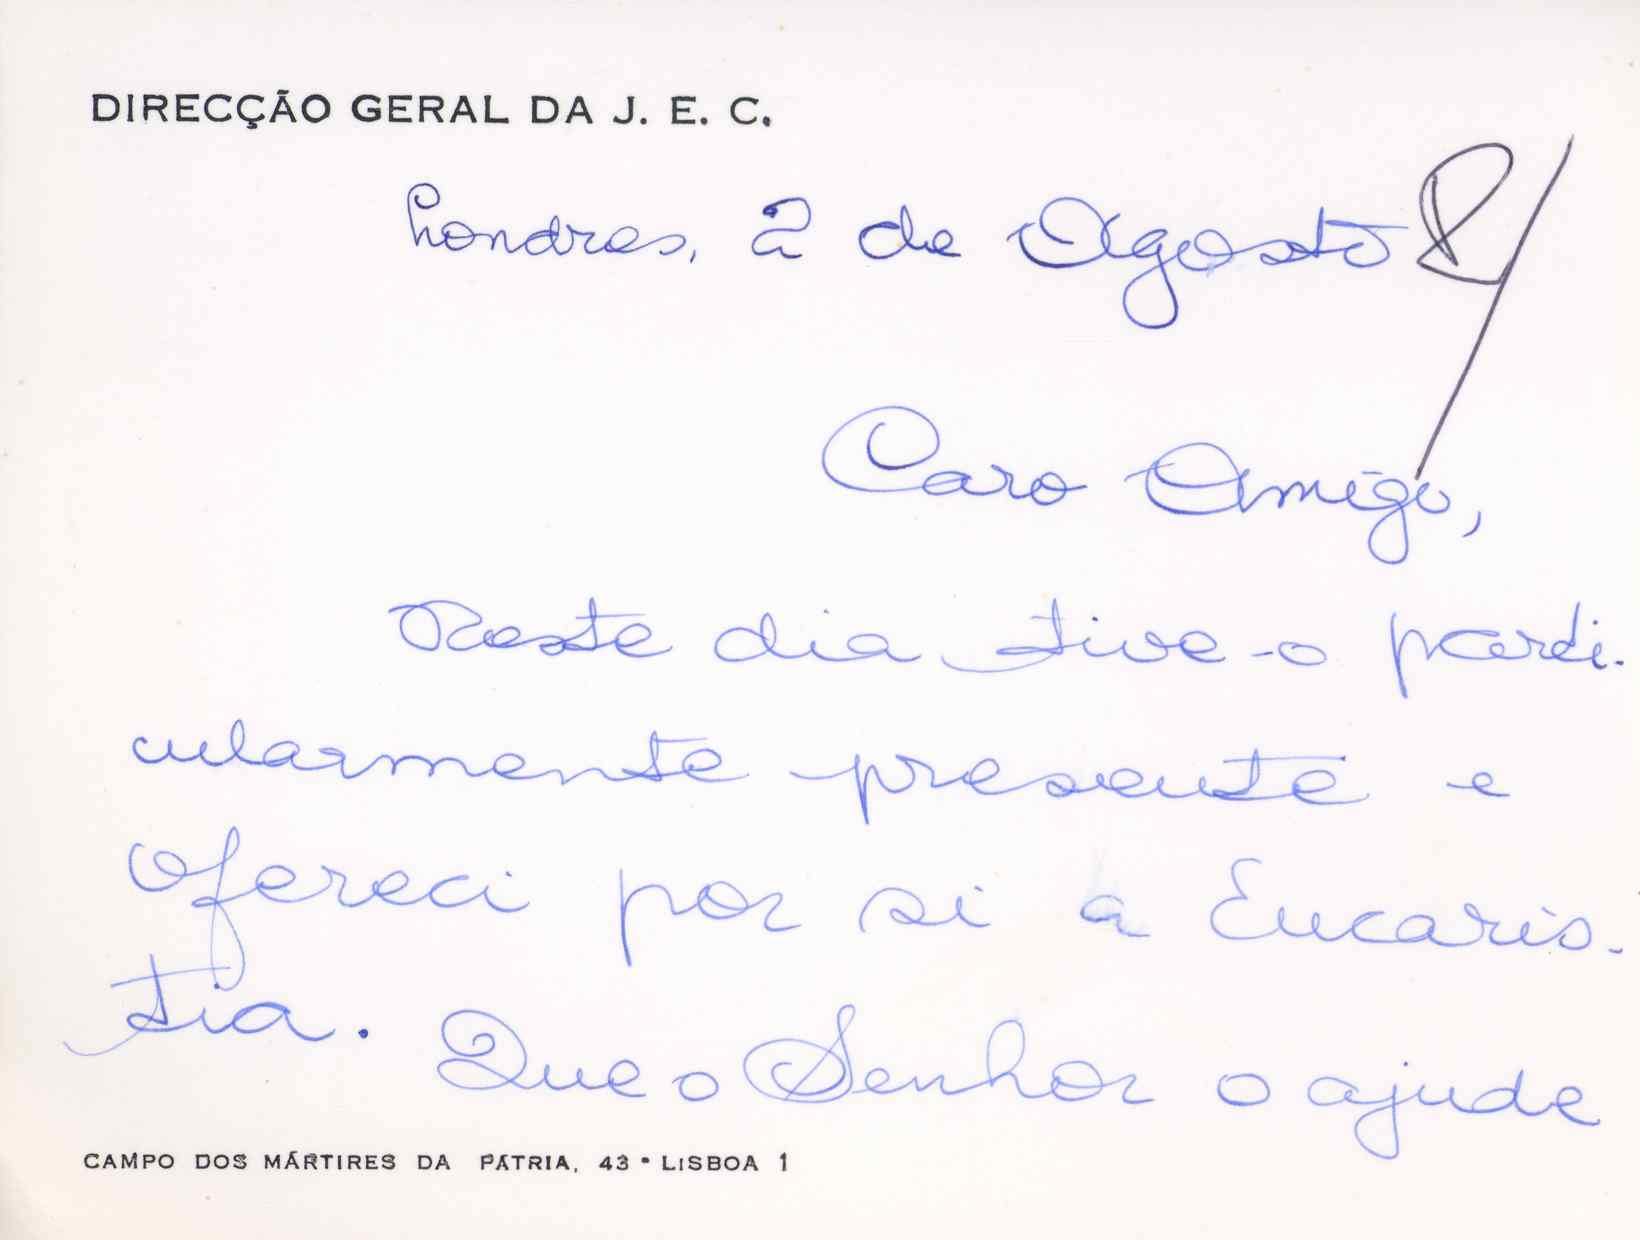 DIRECÇÃO GERAL DA J. E. C.
Londres, 2 de Agosto
Caro Amigo,
Neste dia tive-o parti-
cularmente presente e
ofereci por si a Eucaris-
tia. Que o Senhor o ajude
CAMPO DOS MÁRTIRES DA PÁTRIA, 43 • LISBOA 1